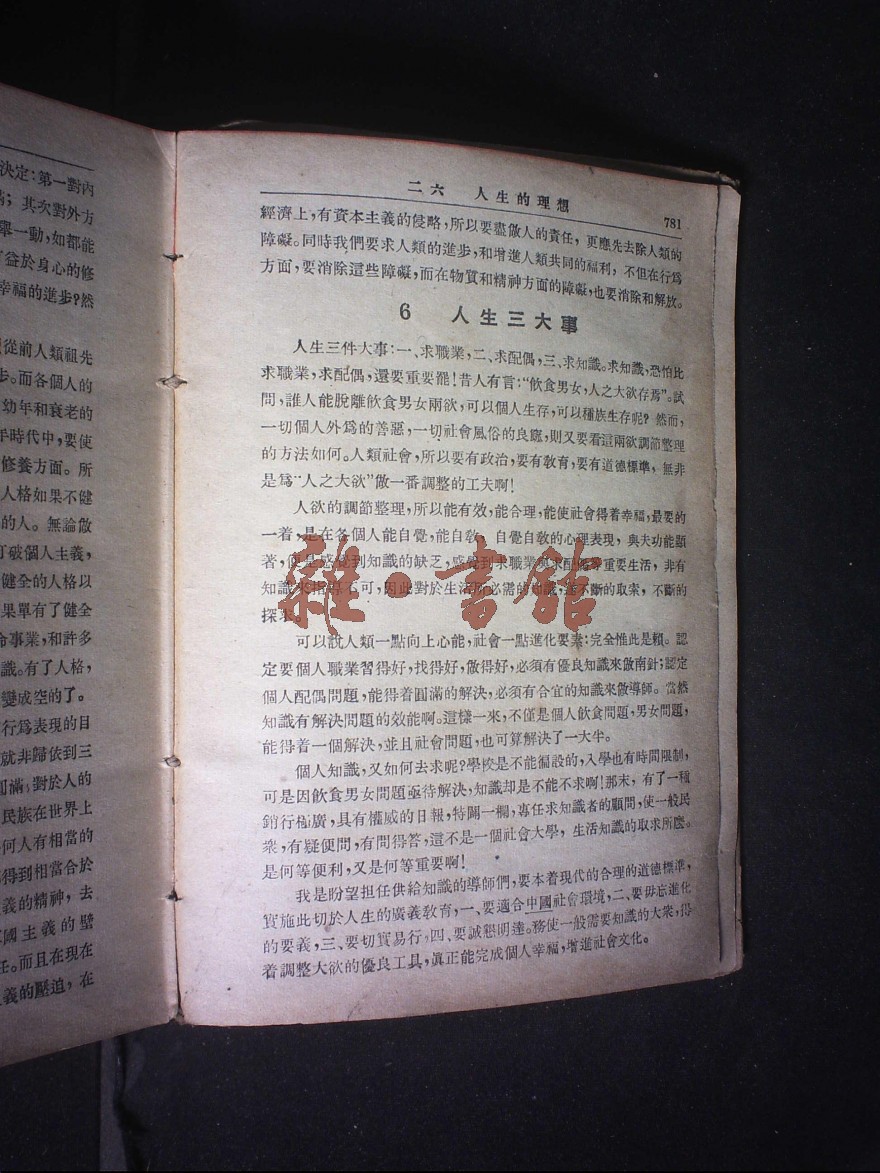 決定:第一對內
其次對外方
舉一動,如都能
益於身心的修
幸福的進步?然
從前人類祖先
步。而各個人的
幼年和衰老的
年時代中,要使
修養方面。所
人格如果不健
的人。無論做
打破個人主義,
健全的人格以
果單有了健全
命事業,和許多
識。有了人格,
變成空的了。
行爲表現的目
就非歸依到三
滿;對於人的
民族在世界上
何人有相當的
得到相當合於
義的精神,去
國主義的壁
任。而且在現在
義的壓迫,在
二六 人生的理想 781
經濟上,有資本主義的侵略,所以要盡做人的責任,更應先去除人類的
障礙。同時我們要求人類的進步,和增進人類共同的福利,不但在行爲
方面,要消除這些障礙,而在物質和精神方面的障礙,也要消除和解放。
6 人生三大事
人生三件大事:一、求職業,二、求配偶,三、求知識。求知識,恐怕比
求職業,求配偶,還要重要罷!昔人有言:“飲食男女,人之大欲存焉”。試
問,誰人能脫離飲食男女兩欲,可以個人生存,可以種族生存呢?然而,
一切個人外爲的善惡,一切社會風俗的良窳,則又要看這兩欲調節整理
的方法如何。人類社會,所以要有政治,要有敎育,要有道德標準,無非
是爲“人之大欲”做一番調整的工夫啊!
人欲的調節整理,所以能有效,能合理,能使社會得着幸福,最要的
一着,是在各個人能自覺,能自敎,自覺自敎的心理表現,與夫功能顯
著,便是感覺到知識的缺乏,感覺到求職業與求配偶等重要生活,非有
知識來指導不可,因此對於生活所必需的知識,進不斷的取索,不斷的
探求。
可以說人類一點向上心能,社會一點進化要素:完全惟此是賴。認
定要個人職業習得好,找得好,做得好,必須有優良知識來做南針;認定
個人配偶問題,能得着圓滿的解決,必須有合宜的知識來做導師。當然
知識有解決問題的效能啊。這樣一來,不僅是個人飲食問題,男女問題,
能得着一個解決,並且社會問題,也可算解決了一大半。
個人知識,又如何去求呢?學校是不能徧設的,入學也有時間限制,
可是因飲食男女問題亟待解決,知識却是不能不求啊!那末,有了一種
銷行極廣,具有權威的日報,特闢一欄,專任求知識者的顧問,使一般民
衆,有疑便問,有問得答,這不是一個社會大學,生活知識的取求所麽。
是何等便利,又是何等重要啊!
我是盼望担任供給知識的導師們,要本着現代的合理的道德標準,
實施此切於人生的廣義敎育,一、要適合中國社會環境,二、要毋忘進化
的要義,三、要切實易行,四、要誠懇明達。務使一般需要知識的大衆,
着調整大欲的優良工具,眞正能完成個人幸福,增進社會文化。
雜·書館